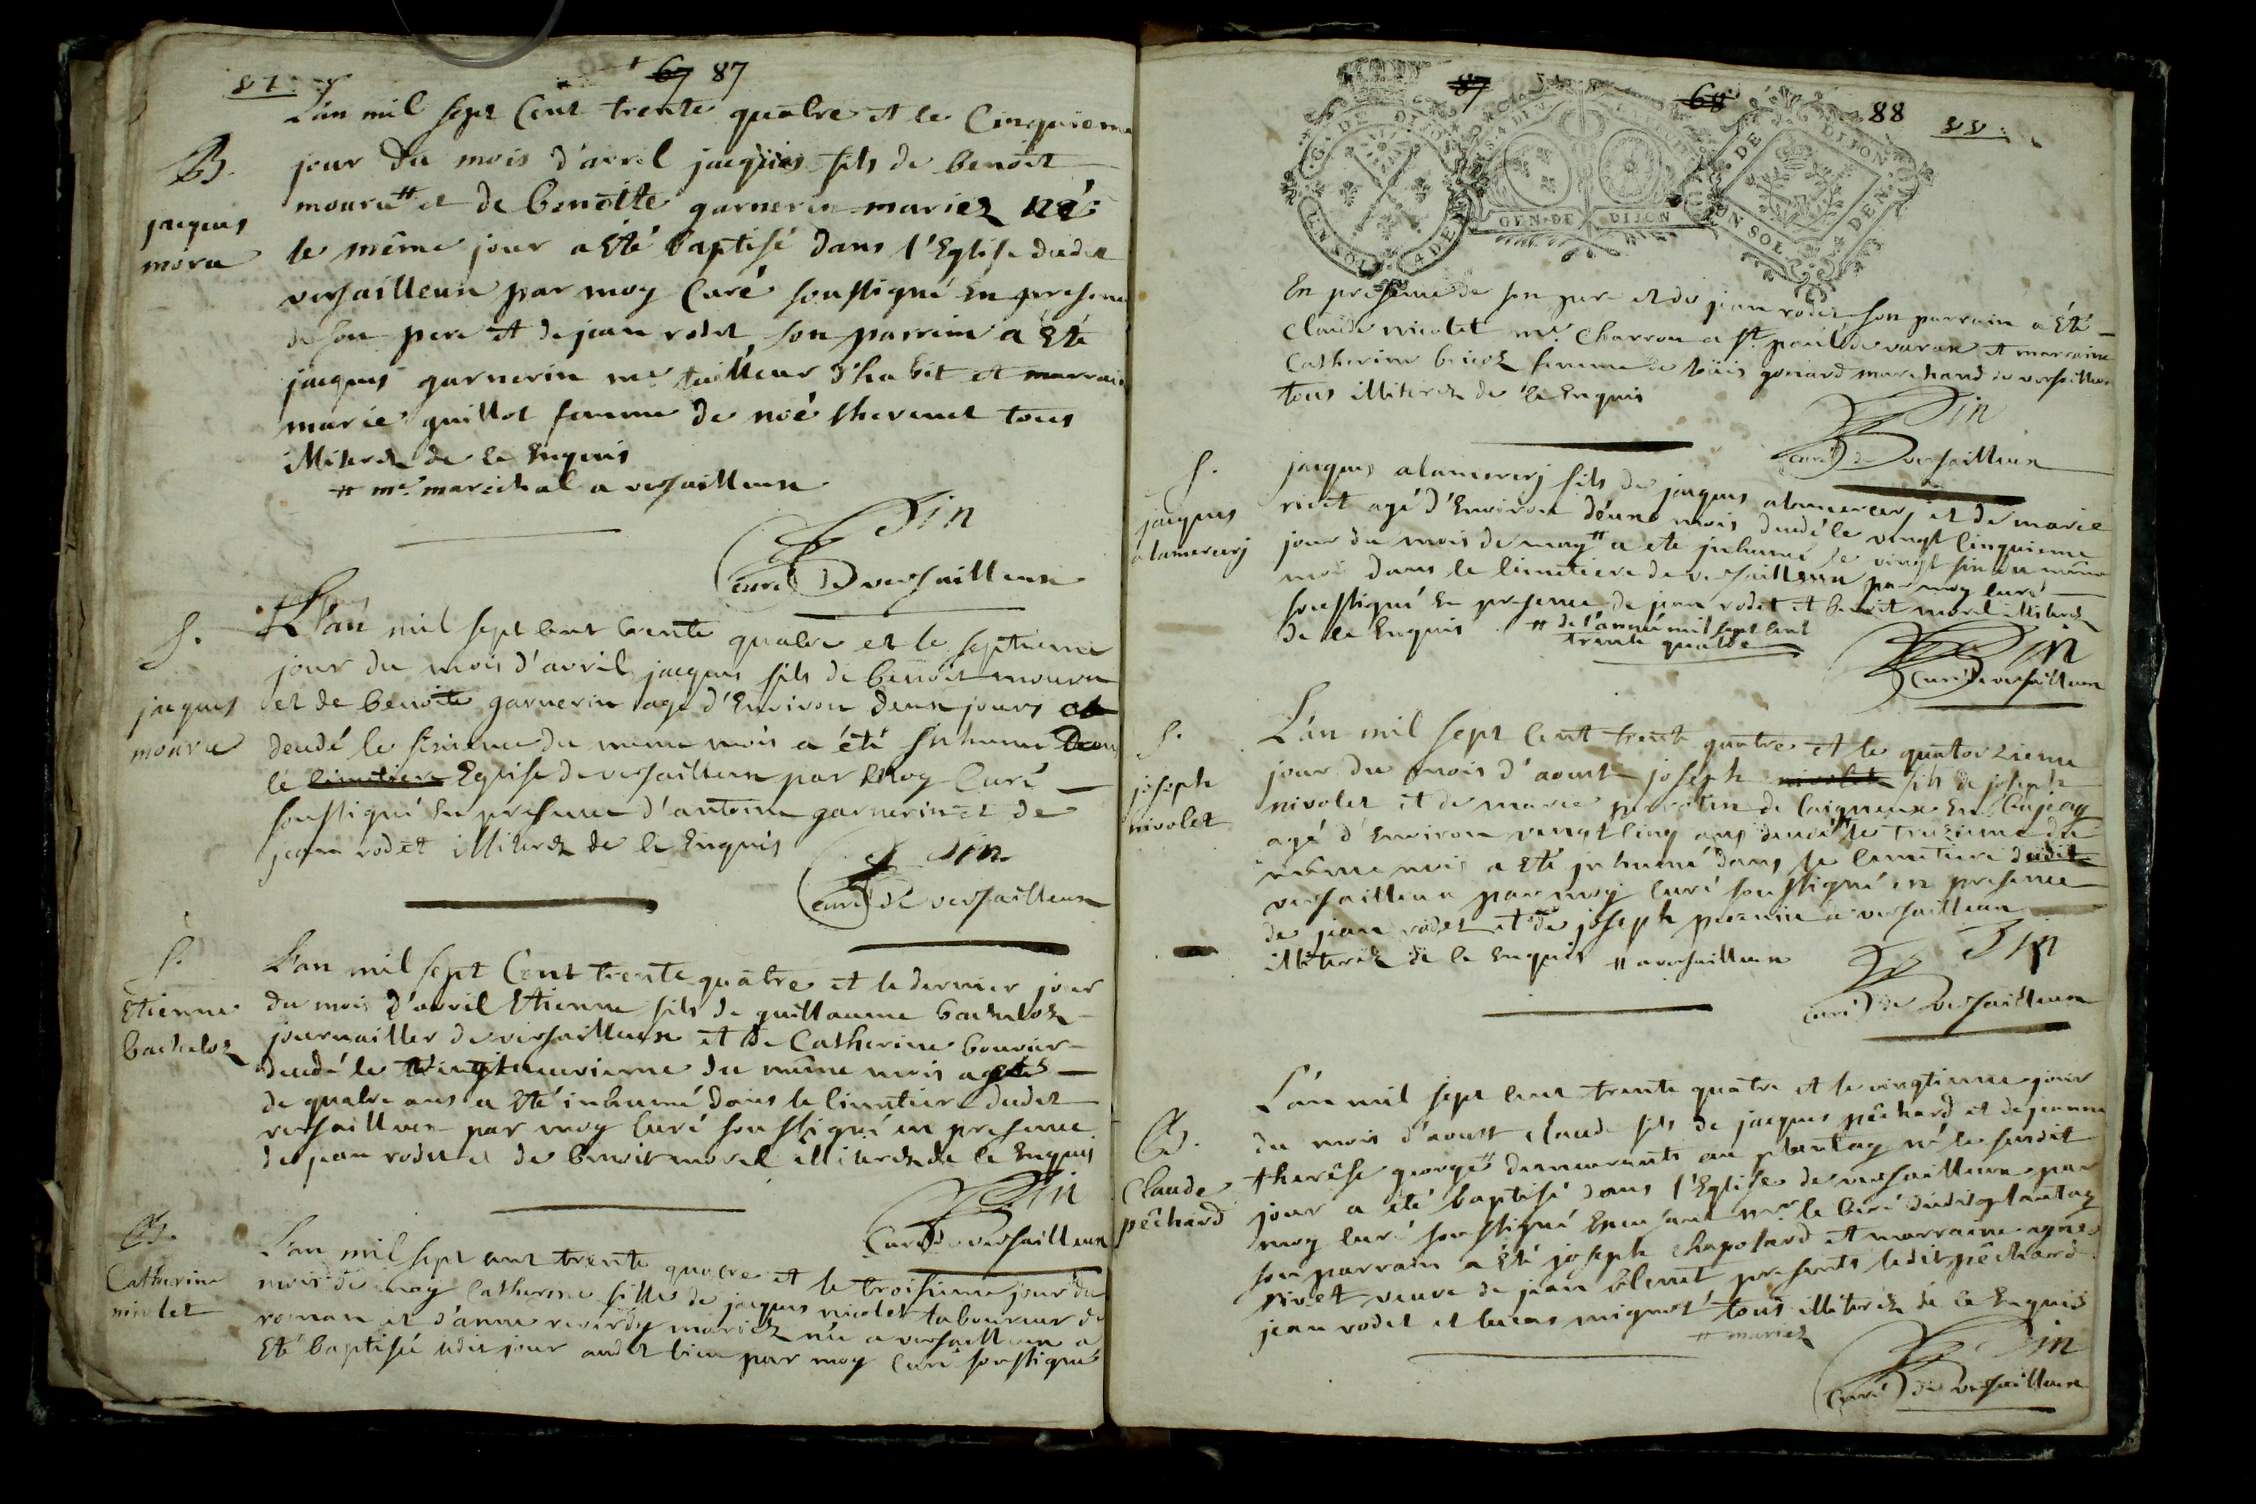 87
67 87
L'an mil sept Cent trente quatre et le Cinquieme
B.
jour du mois d'avril jacques fils de benoit
mouru # et de benoitte garnerin mariez né
jacques
moru
le même jour a Eté baptisé dans l'Eglise dudit
versailleux par moy Curé soussigné En presence
de son pere et de jean rodet son parrain a Eté
jacques garnerin me tailleur d'habit et marraine
marie guillot femme de noé thevenet tous
illiterez de ce Enquis
# me marechal a versailleux
Din
Curé de versailleux
L'an mil sept cent trente quatre et le septieme
S.
jour du mois d'avril jacques fils de benoit mouru
et de benoite garnerin agé d'Environ deux jours
jacques
mouru
decedé le sixieme du meme mois a été Inhumé dans
le cimetiere Eglise de versailleux par Moy Curé
soussigné En presence d'antoine garnerin et de
jean rodet illiterez de ce Enquis
Din
Curé de versailleux
S.
L'an mil sept Cent trente quatre et le dernier jour
Etienne
bacheloz
du mois d'avril Etienne fils de guillaume bacheloz
journailler de versailleux et de Catherine bouvier
decedé le vingtneuvieme du même mois agé
de quatre ans a Eté inhumé dans le Cimetiere dudit
versailleux par moy Curé soussigné en presence
de jean rodet et de benoit morel illiterez de ce Enquis
Din
Curé de versailleux
B.
L'an mil sept cent trente quatre et le troisieme jour du
Catherine
nicolet
mois de may Catherine fille de jacques nicolet laboureur de
roman et d'anne reverdy mariez née a versailleux a
Eté baptisée ledit jour audit lieu par moy Curé soussigné
87
68
88
88
G. DE DIJON
GEN. DE DIJON
DE DIJON
En presence de son pere et de jean rodet son parrain a Eté
Claude nicolet me Charron a St paul de varax et marraine
Catherine femme de loüis gonard marchand de versailleux
tous illiterez de ce Enquis
Din
Curé de versailleux
S.
jacques
alamercerj
jacques alamercerj fils de jacques alamercerj et de marie
agé d'Environ un mois decedé le vingt Cinquieme
jour du mois de may # a eté inhumé le vingt six du même
mois dans le Cimetiere de versailleux par moy Curé
soussigné En presence de jean rodet et benoit morel illiterez
de ce Enquis # de l'année mil sept cent
trente quatre
Din
Curé de versailleux
S.
joseph
nivolet
L'an mil sept Cent trente quatre et le quatorzieme
jour du mois d'aoust joseph nivolet fils de joseph
nivolet et de marie de laigneux En bugeay
agé d'Environ vingt Cinq ans decedé # le treizieme du
même mois a Eté inhumé dans le Cimetiere dudit
versailleux par moy Curé soussigné en presence
de jean rodet et de joseph a versailleux
illiterez de ce Enquis # a versailleux
Din
Curé de versailleux
L'an mil sept cent trente quatre et le vingtieme jour
B.
Claude
pêchard
du mois d'aoust Claude fils de jacques pêchard et de jeanne
therêse george # demeurants au plantay né le susdit
jour a été baptisé dans l'Eglise de versailleux par
moy Curé soussigné le Curé dudit plantay
son parrain a Eté joseph chaposard et marraine
rivet veuve de jean presents ledit pêchard
jean rodet et lucas mignot tous illiterez de ce Enquis
# mariez
Din
Curé de versailleux